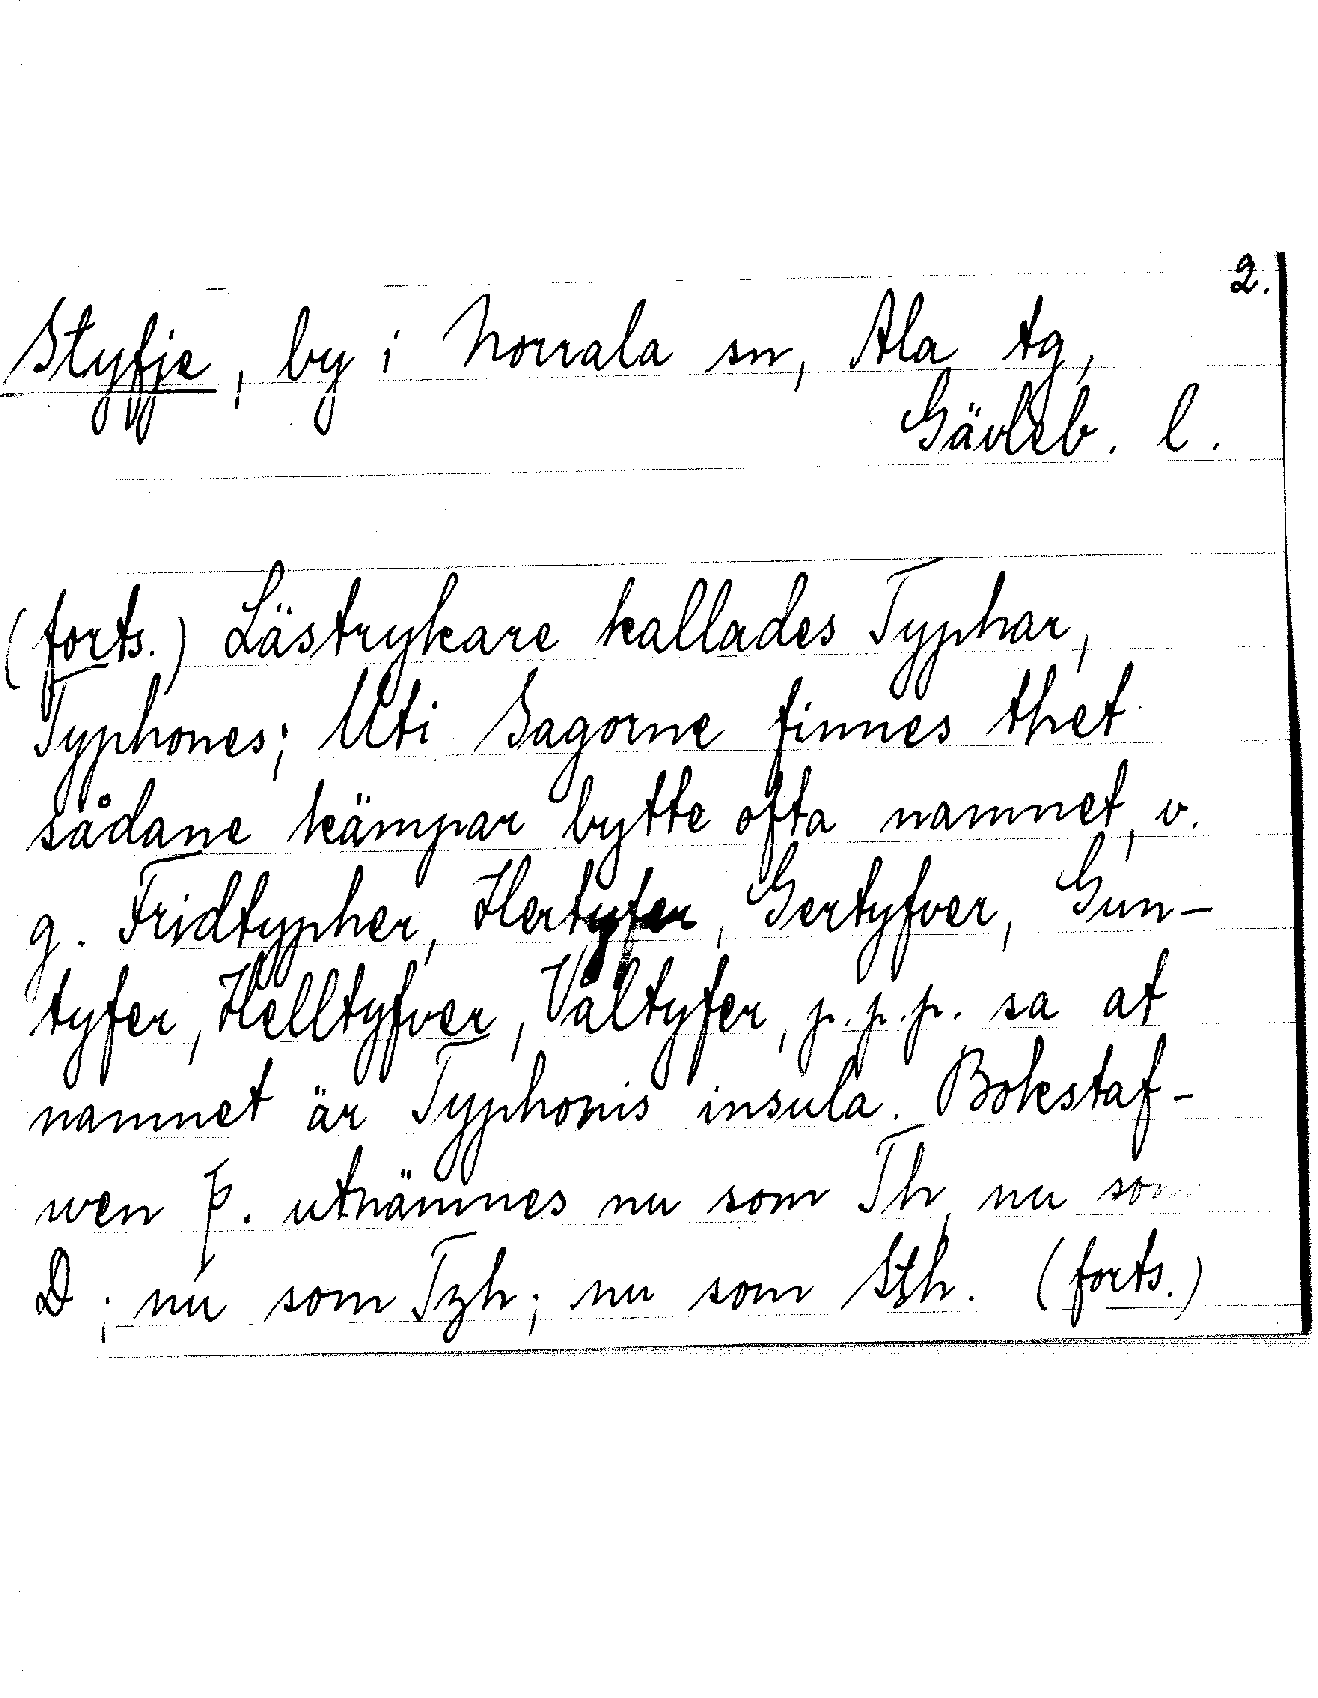 2.
Styfje, by i Norrala sn, Ala tg,
Gävleb. l.
(forts.) Lästrykare kallades Typhar,
Typhones; Uti Sagorne finnes thet
sådane kämpar bytte ofta namnet, v.
g. Fridtypher, Hertyfer, Gertyfver, Gun-
tyfer, Helltyfver, Valtyfer, p.p.p. sa at
namnet är Typhonis insula. Bokstaf-
wen þ. utnämnes nu som Th, nu som
D; nu som Tzh; nu som Sth. (forts.)